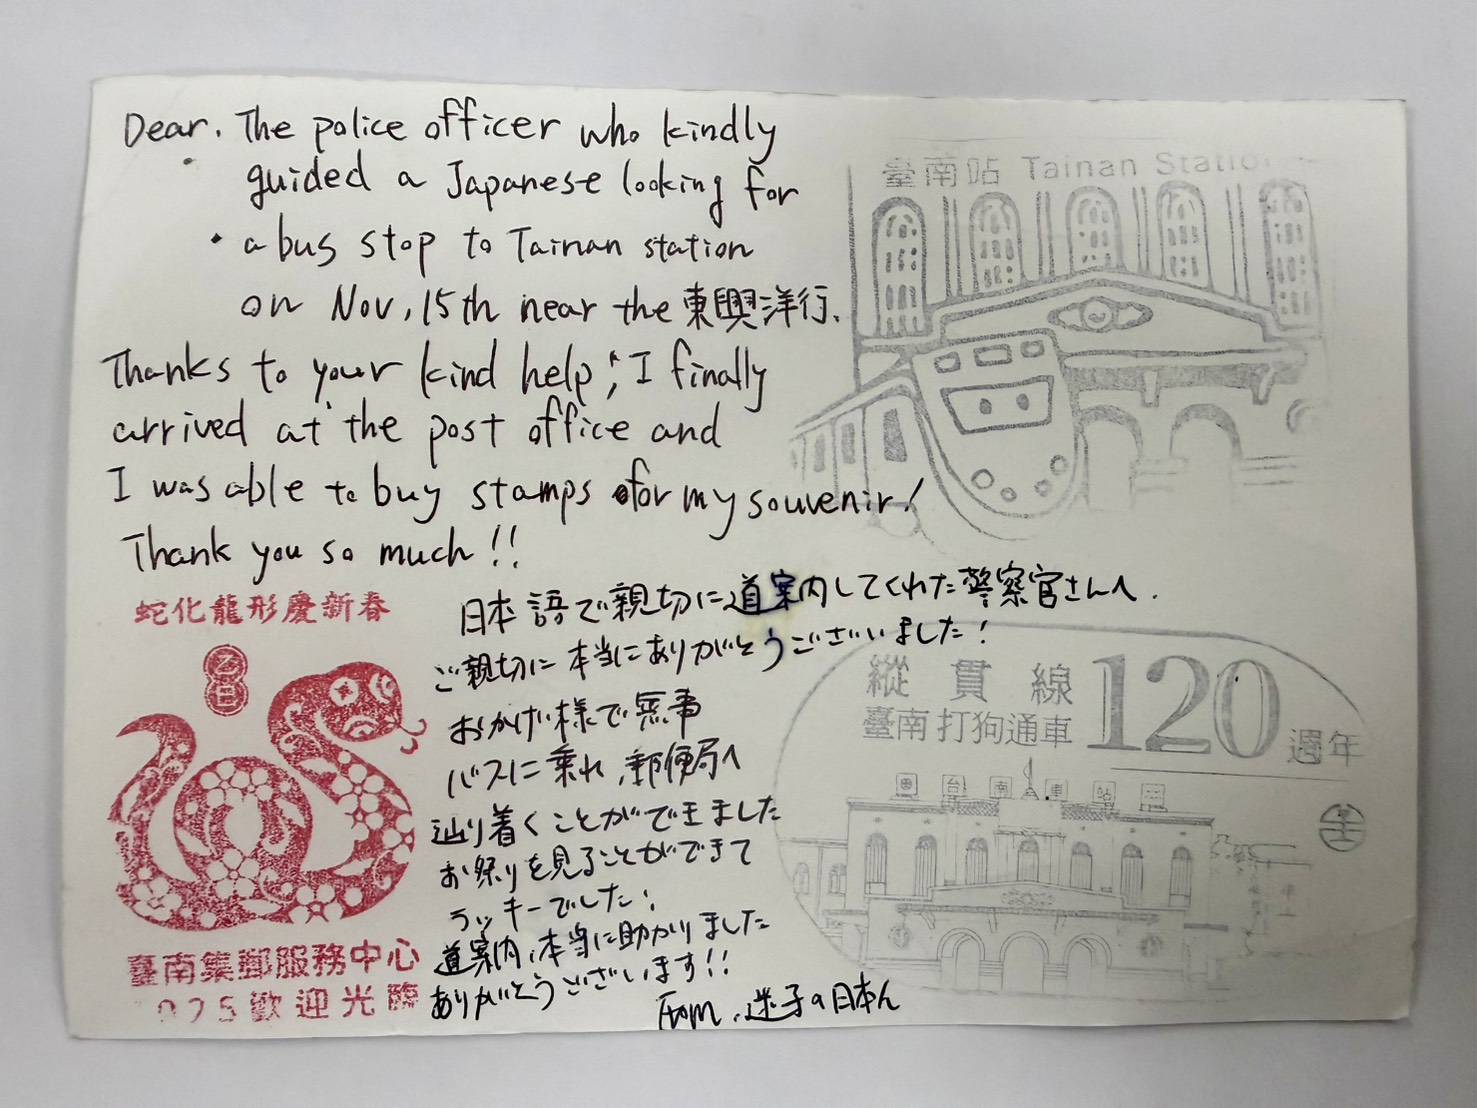 Dear. The police officer who kindly
guided a Japanese looking for
a bus stop to Tainan station
on Nov, 15th near the 東興洋行.
Thanks to your kind help, I finally
arrived at the post office and
I was able to buy stamps for my souvenir!
Thank you so much!!
臺南站 Tainan Statio
蛇化龍形慶新春
乙巳
臺南集郵服務中心
025歡迎光臨
日本語で親切に道案内してくれた警察官さんへ.
ご親切に本当にありがとうございました!
おかげ様で無事
バスに乗れ、郵便局へ
辿り着くことができました
お祭りを見ることができて
ラッキーでした!
道案内、本当に助かりました
ありがとうございます!!
From, 迷子の日本人
縱貫線
臺南打狗通車120週年
台南車站